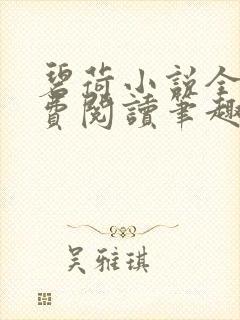 碧荷小说全
费閱讀筆趣
吴雅琪